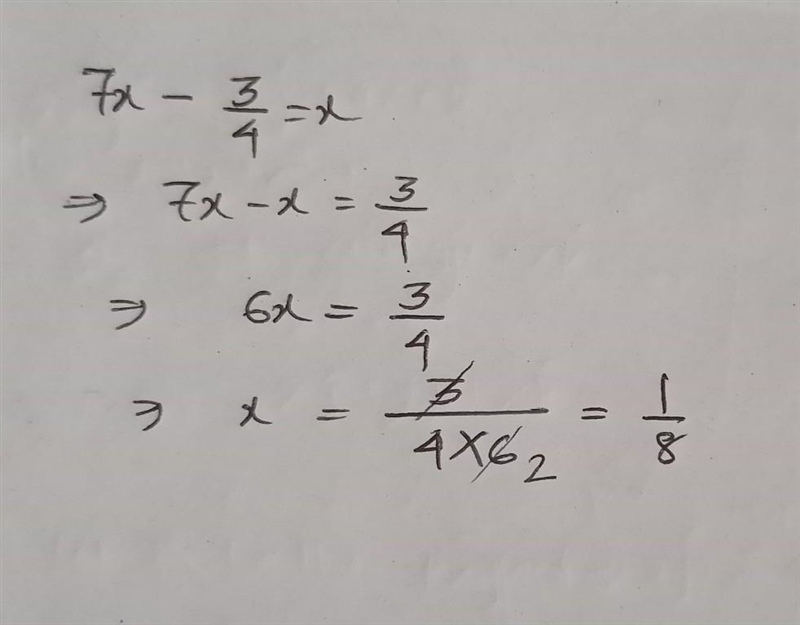 7x - 3/4 = x
⇒ 7x - x = 3/4
⇒ 6x = 3/4
⇒ x = 3/(4×6) 2 = 1/8